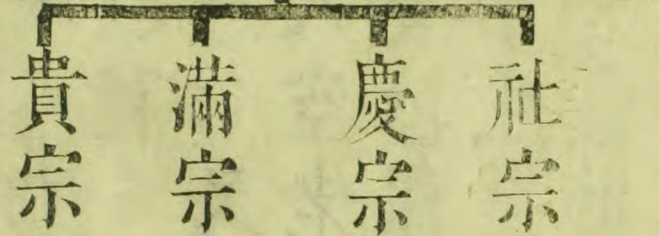 社宗
慶宗
滿宗
貴宗